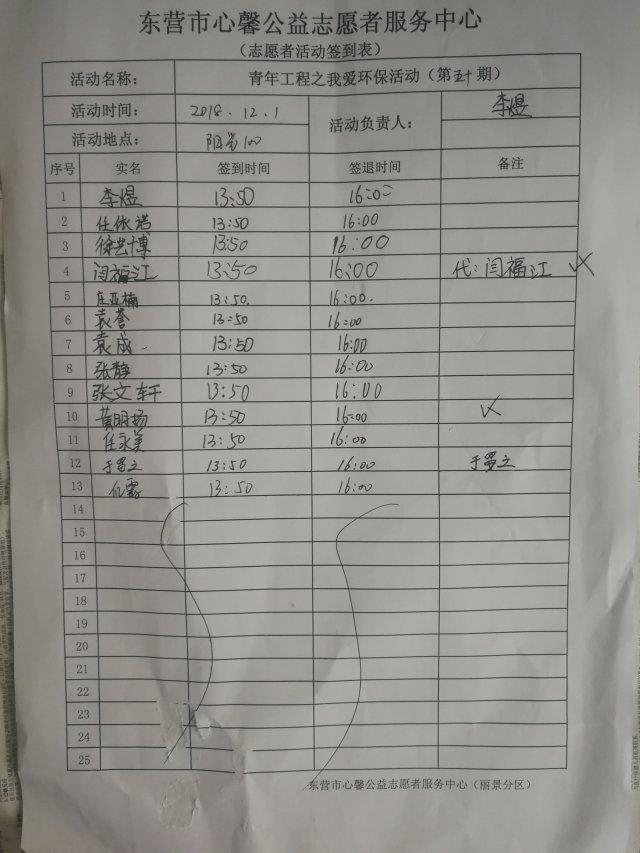 东营市心馨公益志愿者服务中心
（志愿者活动签到表）
活动名称： 青年工程之我爱环保活动（第 期）
活动时间： 2018.12.1 活动负责人： 李煜
活动地点： 阳光100
序号 实名 签到时间 签退时间 备注
1 李煜 13:50 16:00
2 任依诺 13:50 16:00
3 徐艺博 13:50 16:00
4 闫福江 13:50 16:00 代：闫福江
5 庄亚楠 13:50. 16:00.
6 袁誉 13:50 16:00
7 袁成一 13:50 16:00
8 张静 13:50 16:00
9 张文轩 13:50 16:00
10 黄明扬 13:50 16:00
11 任永美 13:50 16:00
12 13:50 16:00
13 13:50 16:00
14
15
16
17
18
19
20
21
22
23
24
25
东营市心馨公益志愿者服务中心（丽景分区）